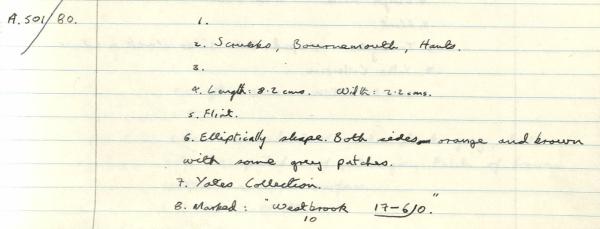 A.501/80. 1.
2. Scrubbs, Bournemouth, Hants.
3.
4. Length: 8.2 cms. Width: 2.2 cms.
5. Flint.
6. Elliptically shape. Both sides orange and brown
with some grey patches.
7. Yates Collection.
8. Marked: "Westbrook 17-6/0."
10